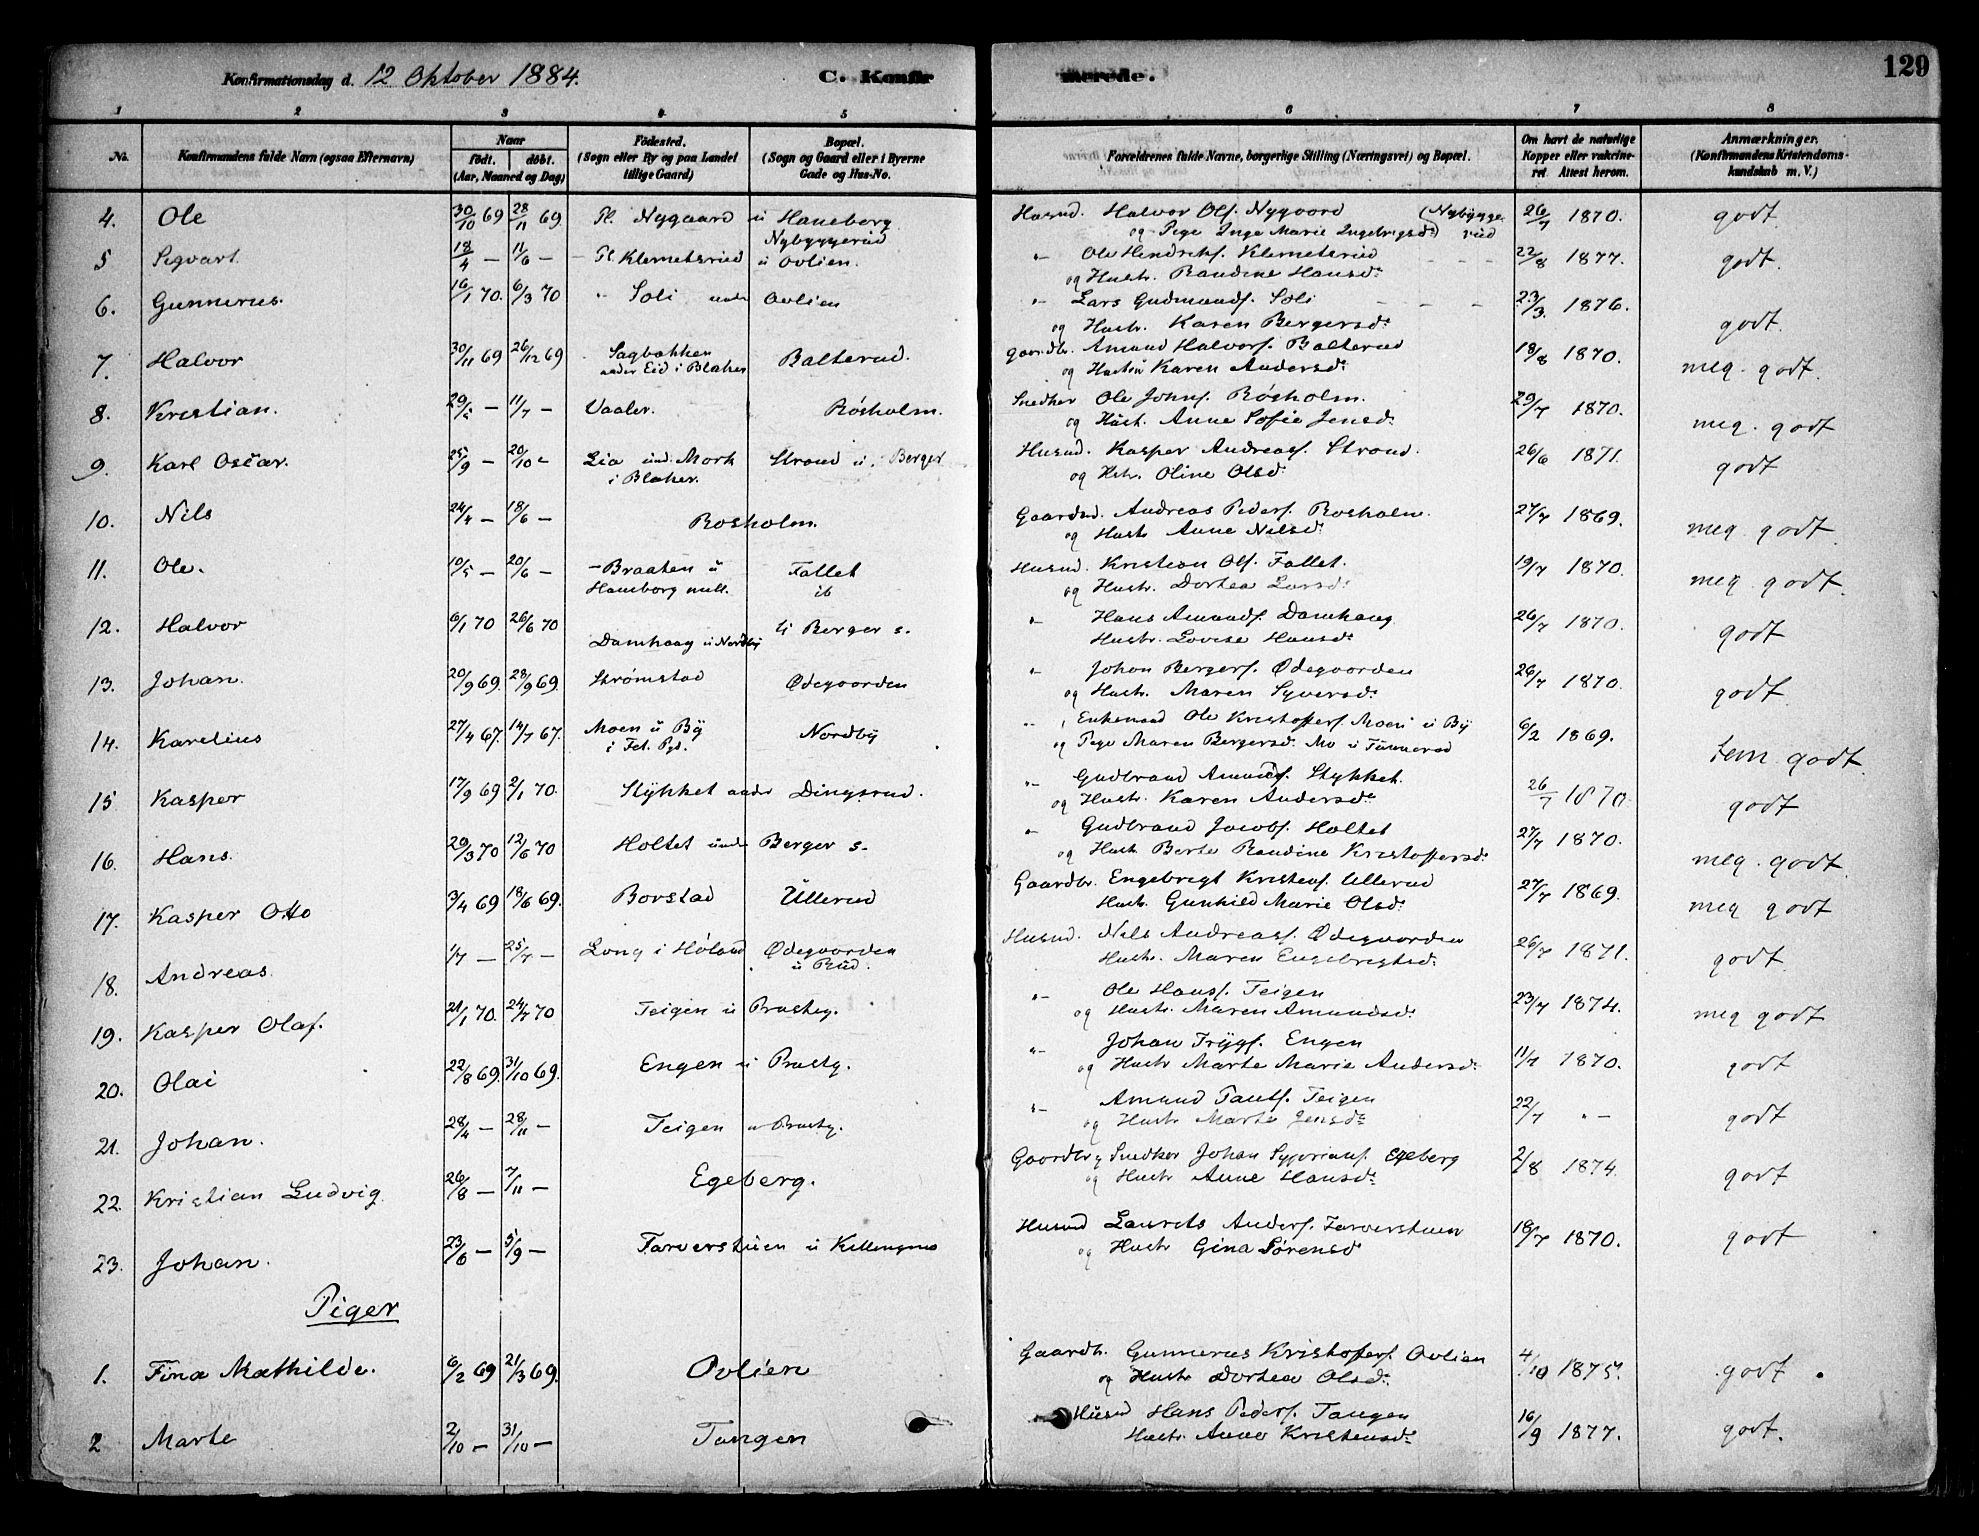 Konfirmationsdag d. 12 Oktober 1884. C. Konfirmerede. 129
1 2 3 4 5 6 7 8
No. Konfirmandens fulde Navn (ogsaa Efternavn) Naar født. døbt. (Aar, Maaned og Dag) Fødested. (Sogn eller By og paa Landet tillige Gaard) Bopæl. (Sogn og Gaard eller i Byerne Gade og Hus-No. Forældrenes fulde Navne, borgerlige Stilling (Næringsvei) og Bopæl. Om havt de naturlige Kopper eller vakcineret. Attest herom. Anmærkninger. (Konfirmandens Kristendomskundskab m. V.)
4. Ole 30/10 69 28/11 69. Pl. Nygaard u Haneborg Husmd. Halvor Ols. Nygaard (Nybyggerud 26/7 1870. godt
og Pige Inge Marie Ingebrigtsd:)
5 Sigvart. 18/4 – 11/6 – Pl. Klemetsrud Nybyggerud u Ovlien. " Ole Hendriks. Klemetsrud 22/8 1877. godt.
og Hustr. Randine Hansd:
6. Gunnerus. 16/1 70. 6/3 70 " Soli under Ovlien " Lars Gudmunds. Soli 23/3. 1876. godt.
og Hustr. Karen Bergersd:
7. Halvor 30/11 69 26/12 69 Sagbakken under Eid i Blaker Balterud. Gaardbr. Amund Halvors. Balterud 18/8 1870. meg. godt.
og Hustru Karen Andersd:
8. Kristian. 29/5 – 11/7 – Vaaler. Røsholm. Snedker Ole Johns. Røsholm. 29/7 1870. meg. godt
og Hust. Anne Sofie Jensd:
9. Karl Oscar. 25/9 – 20/10 – Lia und. Mork i Blaker. Strand u. Berger Husmd. Kasper Andreass. Strand. 26/6 1871. godt
og Hstr. Oline Olsd
10. Nils 24/4 – 18/6 – Rosholm. Gaardmd. Andreas Peders. Rosholm. 27/7 1869. meg godt.
og Hustr Anne Nilsd:
11. Ole. 10/5 – 20/6 – Braaten u Haneborg Fallet ib Husmd. Kristian Ols. Fallet. 19/7 1870. meg godt.
og Hustr. Dorthea Larsd:
12. Halvor 6/1 70 26/6 70 Damhaug u Nordby U Berger s. " Hans Amunds. Damhaug 26/7 1870. godt
Hustr. Lovise Hansd:
13. Johan. 20/9 69. 28/9 69. Strømstad Ødegaarden " Johan Bergers. Ødegaarden 26/7 1870. godt
og Hustr. Maren Syversd:
14. Karelius 27/4 67. 14/7 67. Moen u By i Fet. Pgd. Nordby " Enkemand Ole Kristoffers. Moen u By 6/2 1869. tem godt.
og Pige Maren Bergersd. Mo
15 Kasper 17/9 69 2/1 70. Stykket under Dingsrud. " Gudbrand Amunds. Stykket. 26/7 1870. godt
og Hustr. Karen Andersd:
16. Hans. 29/3 70 12/6 70 Holtet under Berger s. " Gudbrand Jacobs. Holtet 27/7 1870. meg. godt.
og Hustr Berte Randine Kristoffersd:
17. Kasper Otto 3/4 69 18/6 69. Borstad Ullerud Gaardbr. Engebrigt Kristens. Ullerud 27/7 1869. meg godt
Hustr. Gunhild Marie Olsd:
18. Andreas. 1/7 – 25/7 – Long i Høland Ødegaarden u Rud. Husmd. Nils Andreass. Ødegaarden 26/7 1871. godt.
Hustr. Maren Engebrigtsd:
19. Kasper Olaf. 21/1 70. 24/7 70 Teigen u Præstg. " Ole Hanss. Teigen 23/7 1874. meg godt
og Hustr. Maren Amundsd:
20. Olai 22/8 69. 31/10 69. Engen u Præstg. " Johan Trygs. Engen 11/7 1870. godt
og Hustr Marte Marie Andersd:
21. Johan. 28/4 – 28/11 – Teigen u Præstg. " Amund Pauls. Teigen 22/7 " – godt
og Hustr Marte Jensd:
22. Kristian Ludvig. 26/8 – 7/11 – Egeberg. Gaardbr og Snedker Johan Egeberg 2/8 1874. godt
og Hustr Anne Hansd:
23. Johan. 23/6 – 5/9 – Farverstuen u Kellengmo Husmd Laurits Anders. Farverstuen 18/7 1870. godt
og Hustr Gina Sørensd
Piger
1. Fina Mathilde. 6/2 69 21/3 69. Ovlien Gaardbr. Gunnerus Kristoffers. Ovlien 4/10 1875. godt.
og Hustr Dorthea Olsd:
2 Marte 2/10 – 31/10 – Tangen Husmd Hans Peders. Tangen 16/9 1877. godt.
Hustr. Anne Kristensd: